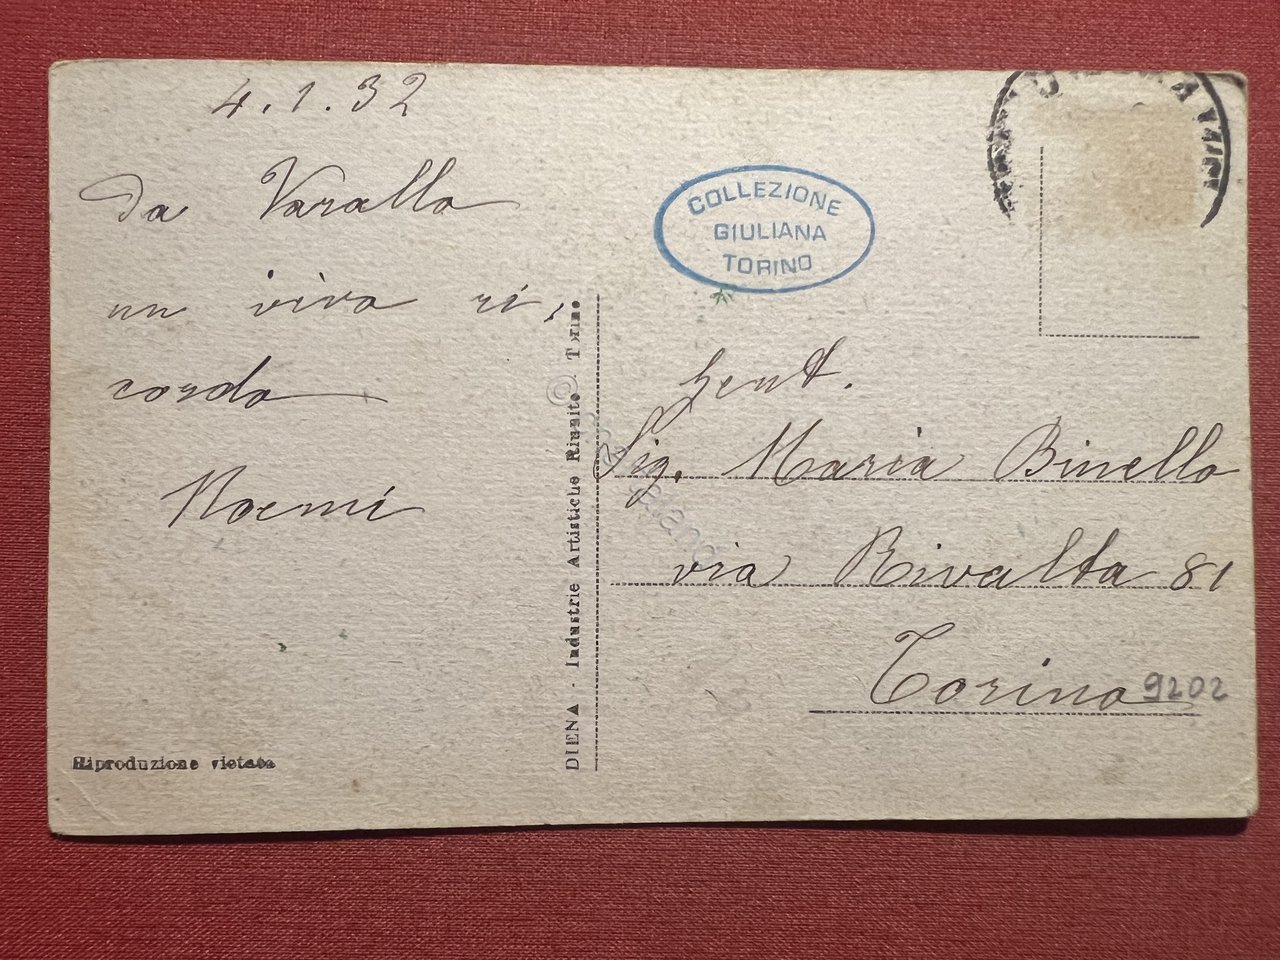 4.1.32
da Varallo
un vivo ri,
cordo
Noemi
Riproduzione vietata
DIENA - Industrie Artistiche Riunite - Torino
COLLEZIONE
GIULIANA
TORINO
Gent.
Sig. Maria Binello
via Rivalta 81
Torino
9202